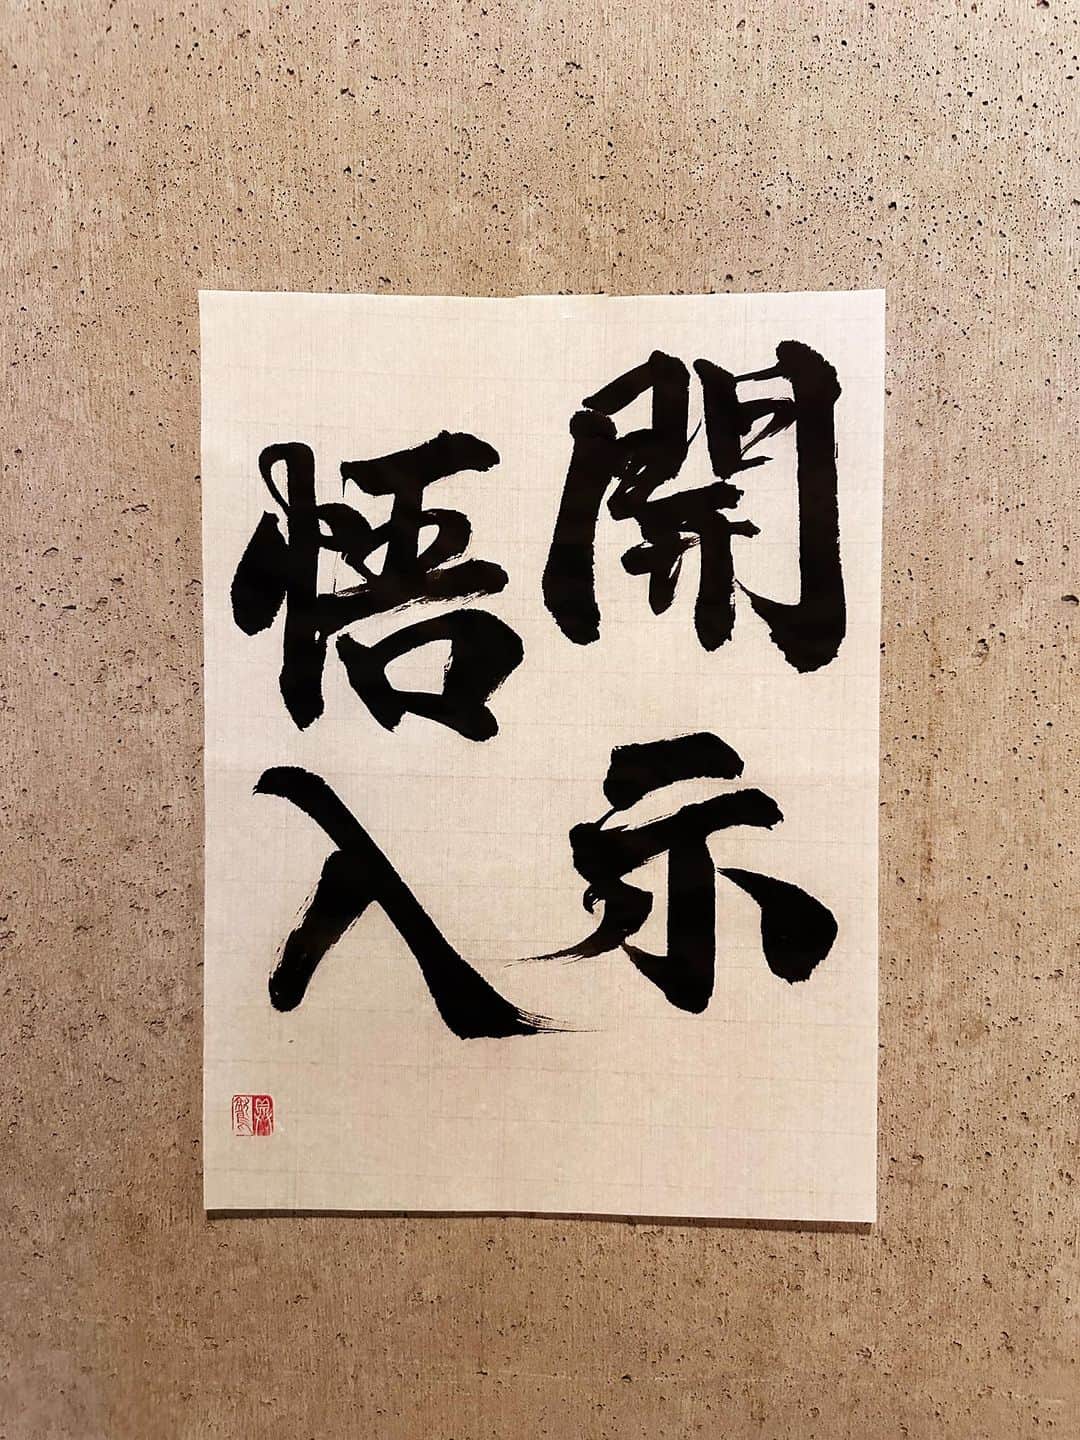 開示
悟入